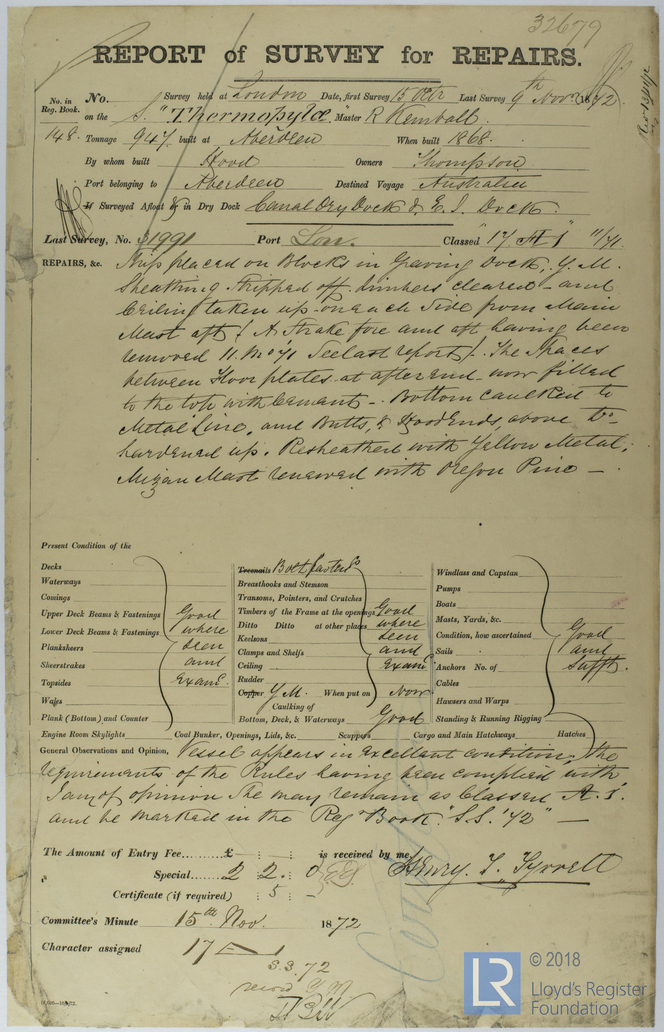 32679
REPORT of SURVEY for REPAIRS.
No. in Reg. Book. No. Survey held at London Date, first Survey 15 Octr Last Survey 9th Novr 1872
on the S. "Thermopylæ" Master R Kemball
148 Tonnage 947 built at Aberdeen When built 1868.
By whom built Hood Owners Thompson
Port belonging to Aberdeen Destined Voyage Australia
If Surveyed Afloat or in Dry Dock Canal Dry Dock & E. I. Dock.
Last Survey, No. 31991 Port Lon. Classed 17 A 1 11/71
REPAIRS, &c. Ship placed on Blocks in Graving Dock, Y.M.
Sheathing stripped off, limbers cleared and
Ceiling taken up on each side from Main
Mast aft (A Strake fore and aft having been
removed 11. Mo '71 See last report). The Spaces
between Floor plates at after end now filled
to the top with Cement. Bottom caulked to
Metal Line, and Butts, & Hood Ends, above Do
hardened up. Resheathed with Yellow Metal,
Mizan Mast renewed with Oregon Pine —
Present Condition of the
Decks
Waterways
Comings
Upper Deck Beams & Fastenings Good
Lower Deck Beams & Fastenings where
Planksheers seen
Sheerstrakes and
Topsides Examd.
Wales
Plank (Bottom) and Counter
Treenails Bolt fastend
Breasthooks and Stemson
Transoms, Pointers, and Crutches
Timbers of the Frame at the openings Good
Ditto Ditto at other places where
Keelsons seen
Clamps and Shelfs and
Ceiling Examd.
Rudder
Copper Y.M. When put on Now
Caulking of
Bottom, Deck, & Waterways Good
Windlass and Capstan
Pumps
Boats
Masts, Yards, &c.
Condition, how ascertained Good
Sails and
Anchors No. of Sufft.
Cables
Hawsers and Warps
Standing & Running Rigging
Engine Room Skylights Coal Bunker, Openings, Lids, &c. Scuppers Cargo and Main Hatchways Hatches
General Observations and Opinion, Vessel appears in excellent condition, the
requirements of the Rules having been complied with
I am of opinion She may remain as Classed A.1.
and be marked in the Reg Book. "S.S. '72" —
The Amount of Entry Fee...... £ : : is received by me,
Special...... 2 2. 0
Certificate (if required) : 5 : Henry. T. Tyrrell
Committee's Minute 15th Nov. 1872
Character assigned 17 A 1
S.S. 72
LR © 2018
Lloyd's Register
Foundation